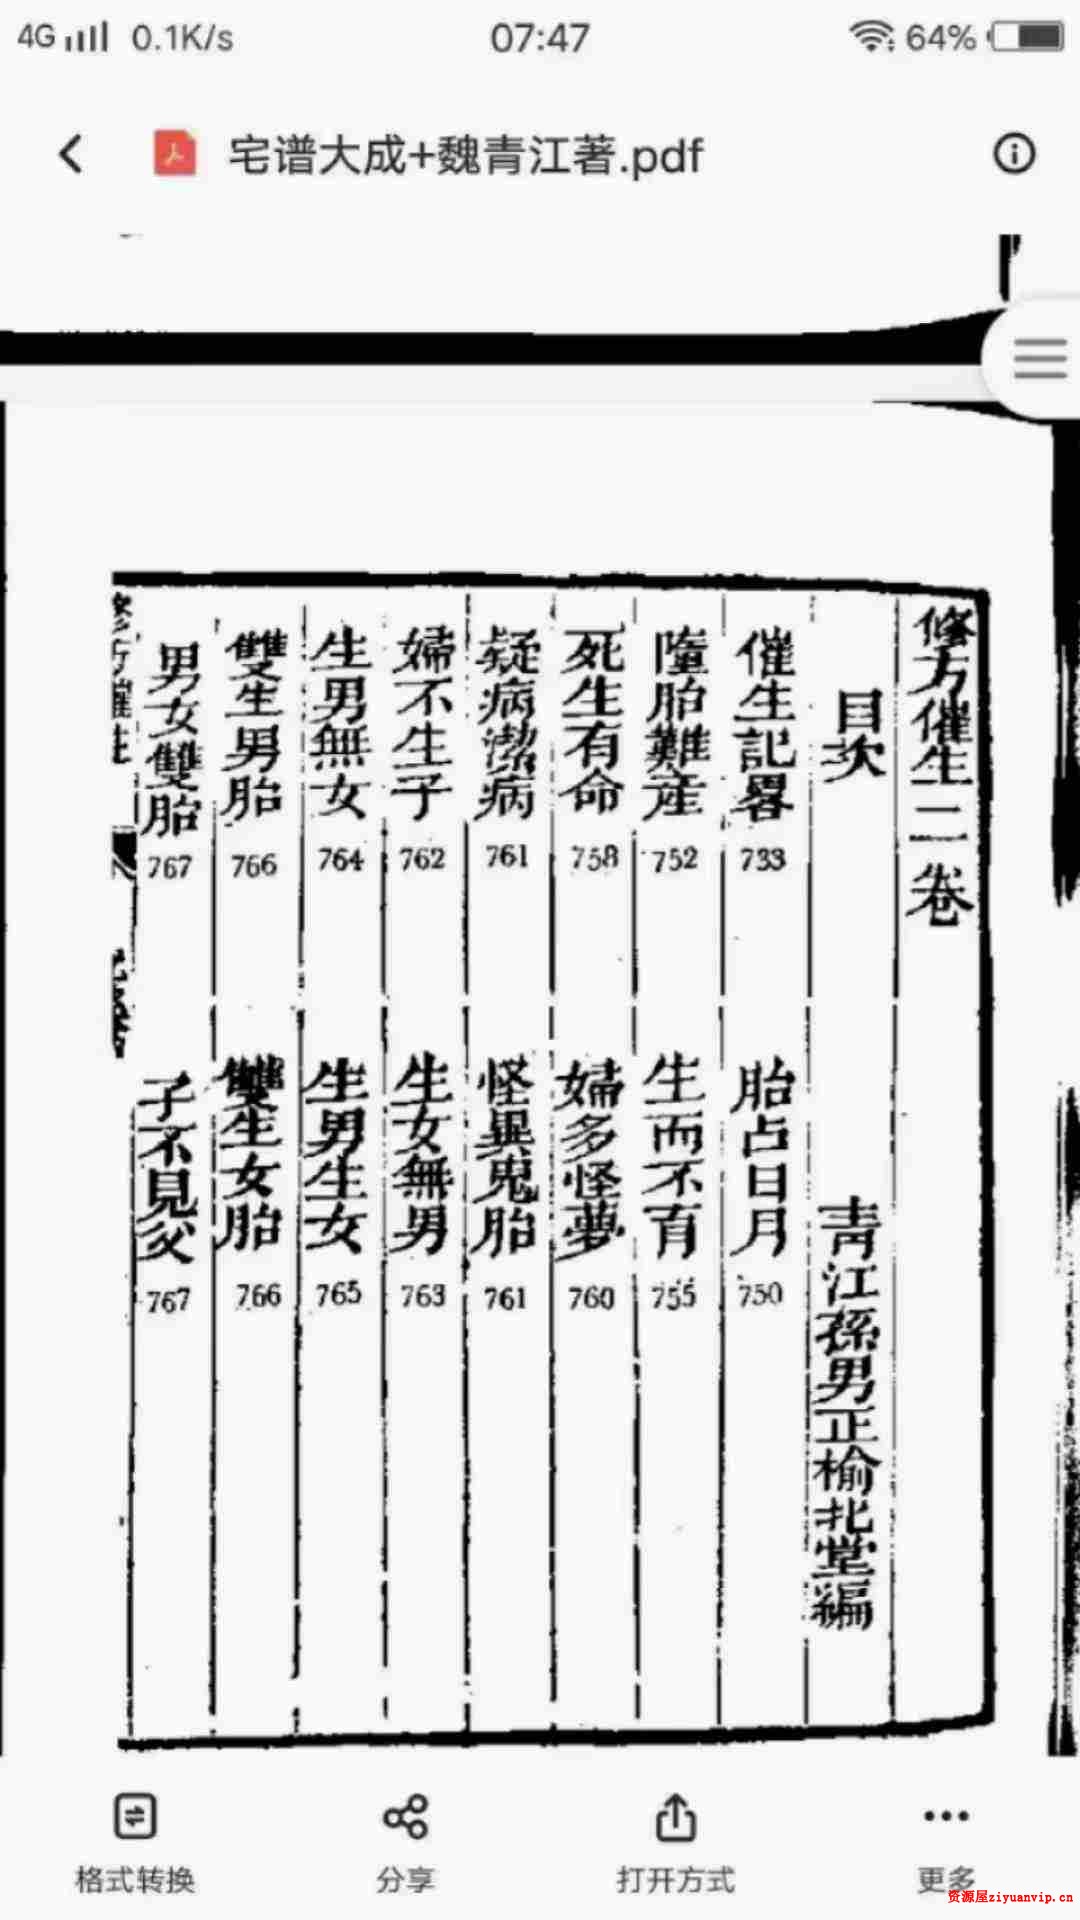 4G 0.1K/s 07:47 64%
宅谱大成+魏青江著.pdf
修方催生二卷
目次 青江孫男正榆北堂編
催生記畧 733 胎占日月 750
墮胎難產 752 生而不育 755
死生有命 758 婦多怪夢 760
疑病潔病 761 怪異鬼胎 761
婦不生子 762 生女無男 763
生男無女 764 生男生女 765
雙生男胎 766 雙生女胎 766
男女雙胎 767 子不見父 767
格式转换 分享 打开方式 更多
资源屋ziyuanvip.cn